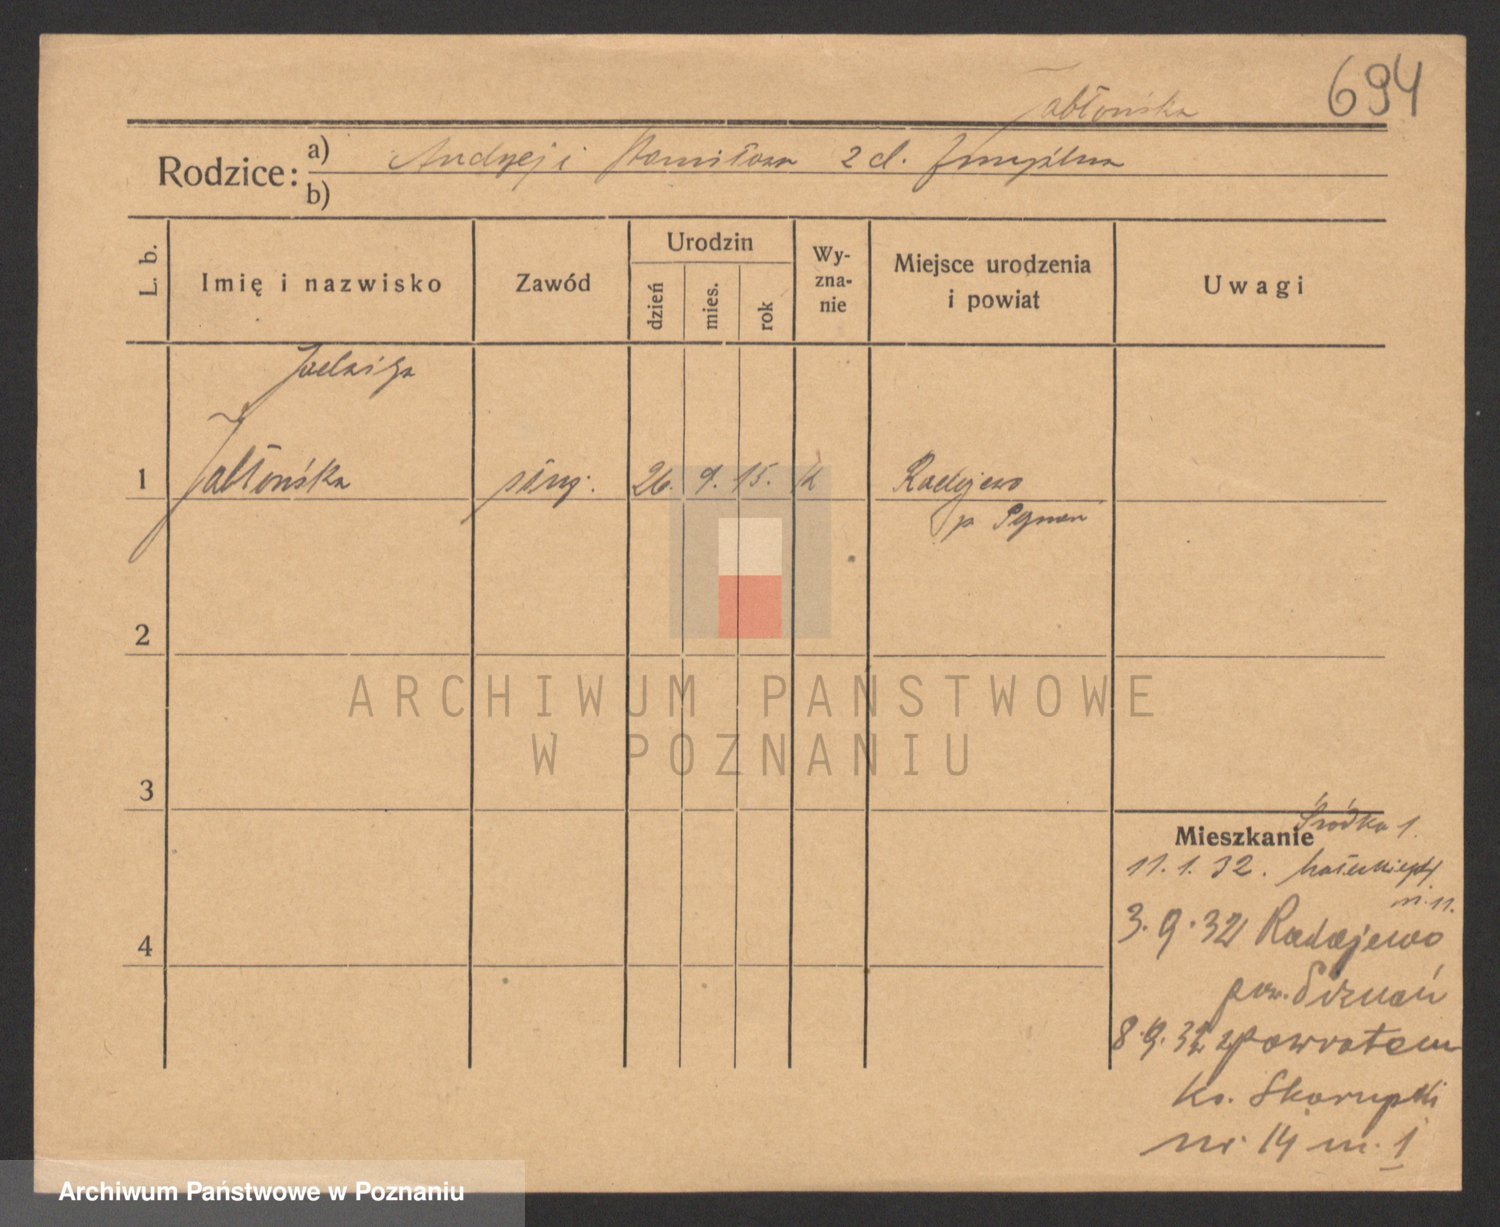 694
Jabłońska
Rodzice: a) Andrzej i Stanisława z d.
b)
L. b.
Imię i nazwisko
Zawód
Urodzin
dzień
mies.
rok
Wy-
zna-
nie
Miejsce urodzenia
i powiat
Uwagi
Jadwiga
1 Jabłońska służ. 26. 9. 15. k Radojewo
p. Poznań
2
ARCHIWUM PAŃSTWOWE
W POZNANIU
3
Mieszkanie
Śródka 1.
11.1.32.
m. 11.
3.9.32 Radojewo
pow. Poznań
8.9.32 z powrotem
Ks. Skorupki
nr. 14 m. 1
4
Archiwum Państwowe w Poznaniu